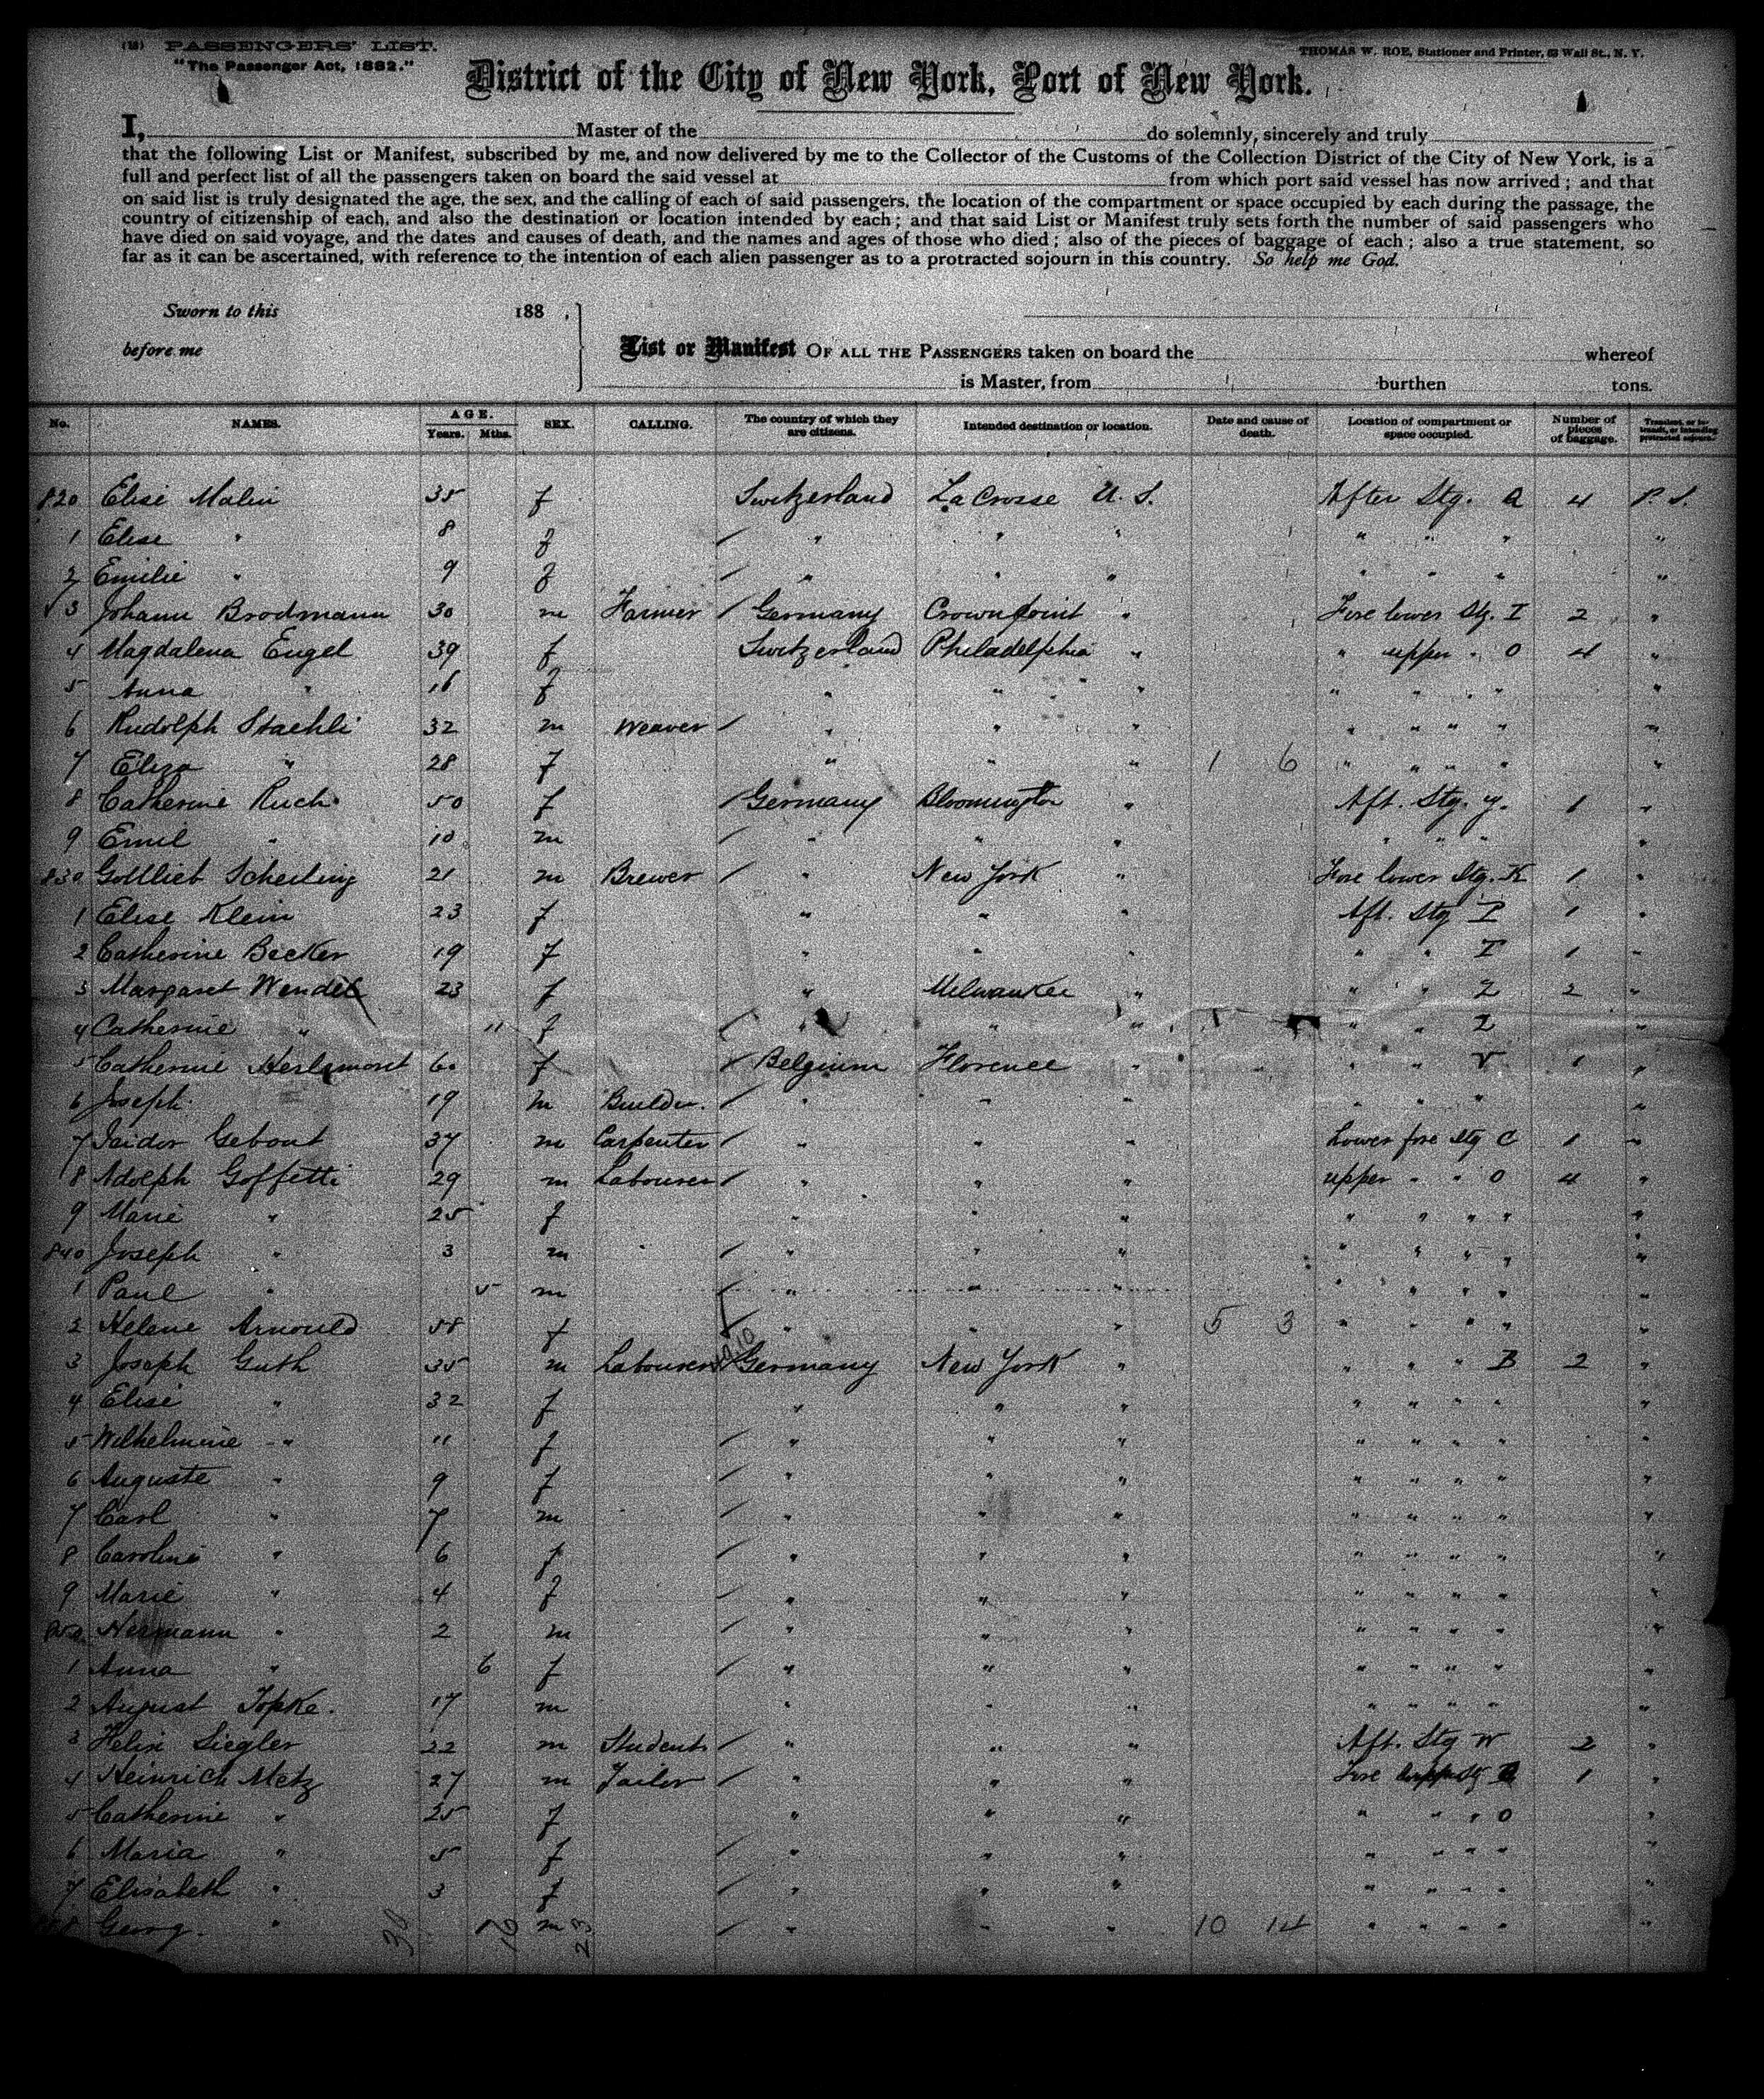 (18) PASSENGERS' LIST.
"The Passenger Act, 1882."
THOMAS W. ROE, Stationer and Printer, 63 Wall St., N. Y.
District of the City of New York, Port of New York.
I, Master of the do solemnly, sincerely and truly
that the following List or Manifest, subscribed by me, and now delivered by me to the Collector of the Customs of the Collection District of the City of New York, is a
full and perfect list of all the passengers taken on board the said vessel at from which port said vessel has now arrived; and that
on said list is truly designated the age, the sex, and the calling of each of said passengers, the location of the compartment or space occupied by each during the passage, the
country of citizenship of each, and also the destination or location intended by each; and that said List or Manifest truly sets forth the number of said passengers who
have died on said voyage, and the dates and causes of death, and the names and ages of those who died; also of the pieces of baggage of each; also a true statement, so
far as it can be ascertained, with reference to the intention of each alien passenger as to a protracted sojourn in this country. So help me God.
Sworn to this 188 ,
before me
List or Manifest OF ALL THE PASSENGERS taken on board the whereof
is Master, from burthen tons.
No. NAMES. AGE. Years. Mths. SEX. CALLING. The country of which they are citizens. Intended destination or location. Date and cause of death. Location of compartment or space occupied. Number of pieces of baggage. Transient, or in transit, or intending protracted sojourn.
820 Elise Malin 35 f Switzerland LaCrosse U. S. After Stg. Q 4 P. S.
1 Elise " 8 f " " " " " " "
2 Emilie " 9 f " " " " " " "
3 Johann Brodmann 30 m Farmer Germany Crown point " Fore lower Stg. I 2 "
4 Magdalena Engel 39 f Switzerland Philadelphia " " upper " O 4 "
5 Anna " 16 f " " " " " " " "
6 Rudolph Staehli 32 m Weaver " " " " " " " "
7 Eliza " 28 f " " " 1 6 " " " " "
8 Catherine Ruch 50 f Germany Bloomington " Aft. Stg. y. 1 "
9 Emil " 10 m " " " " " " "
830 Gottlieb Scheiling 21 m Brewer " New York " Fore lower Stg. K 1 "
1 Elise Klein 23 f " " " Aft. Stg I 1 "
2 Catherine Becker 19 f " " " " " I 1 "
3 Margaret Wendel 23 f " Milwaukee " " " Z 2 "
4 Catherine " 11 f " " " " " Z "
5 Catherine 60 f Belgium Florence " " " V 1 "
6 Joseph 19 m Builder. " " " " " " "
7 Isidor Gebout 37 m Carpenter " " " Lower fore Stg C 1 "
8 Adolph Goffetti 29 m Labourer " " " upper " " O 4 "
9 Marie " 25 f " " " " " " " "
840 Joseph " 3 m " " " " " " " "
1 Paul " 5 m " " " " " " " "
2 Helene Arnould 58 f " " " 5 3 " " " " "
3 Joseph Guth 35 m Labourer Germany New York " " " " B 2 "
4 Elise " 32 f " " " " " " " "
5 Wilhelmine " 11 f " " " " " " " "
6 Auguste " 9 f " " " " " " " "
7 Carl " 7 m " " " " " " " "
8 Caroline " 6 f " " " " " " " "
9 Marie " 4 f " " " " " " " "
850 Hermann " 2 m " " " " " " " "
1 Anna " 6 f " " " " " " " "
2 August Topke. 17 m " " " " " " " "
3 Felix Siegler 22 m Student " " " Aft. Stg W 2 "
4 Heinrich Metz 27 m Tailor " " " Fore 1 "
5 Catherine " 25 f " " " " " " O "
6 Maria " 5 f " " " " " " " "
7 Elisabeth " 3 f " " " " " " " "
Georg. " m " " " 10 14 " " " " "
30 16 23